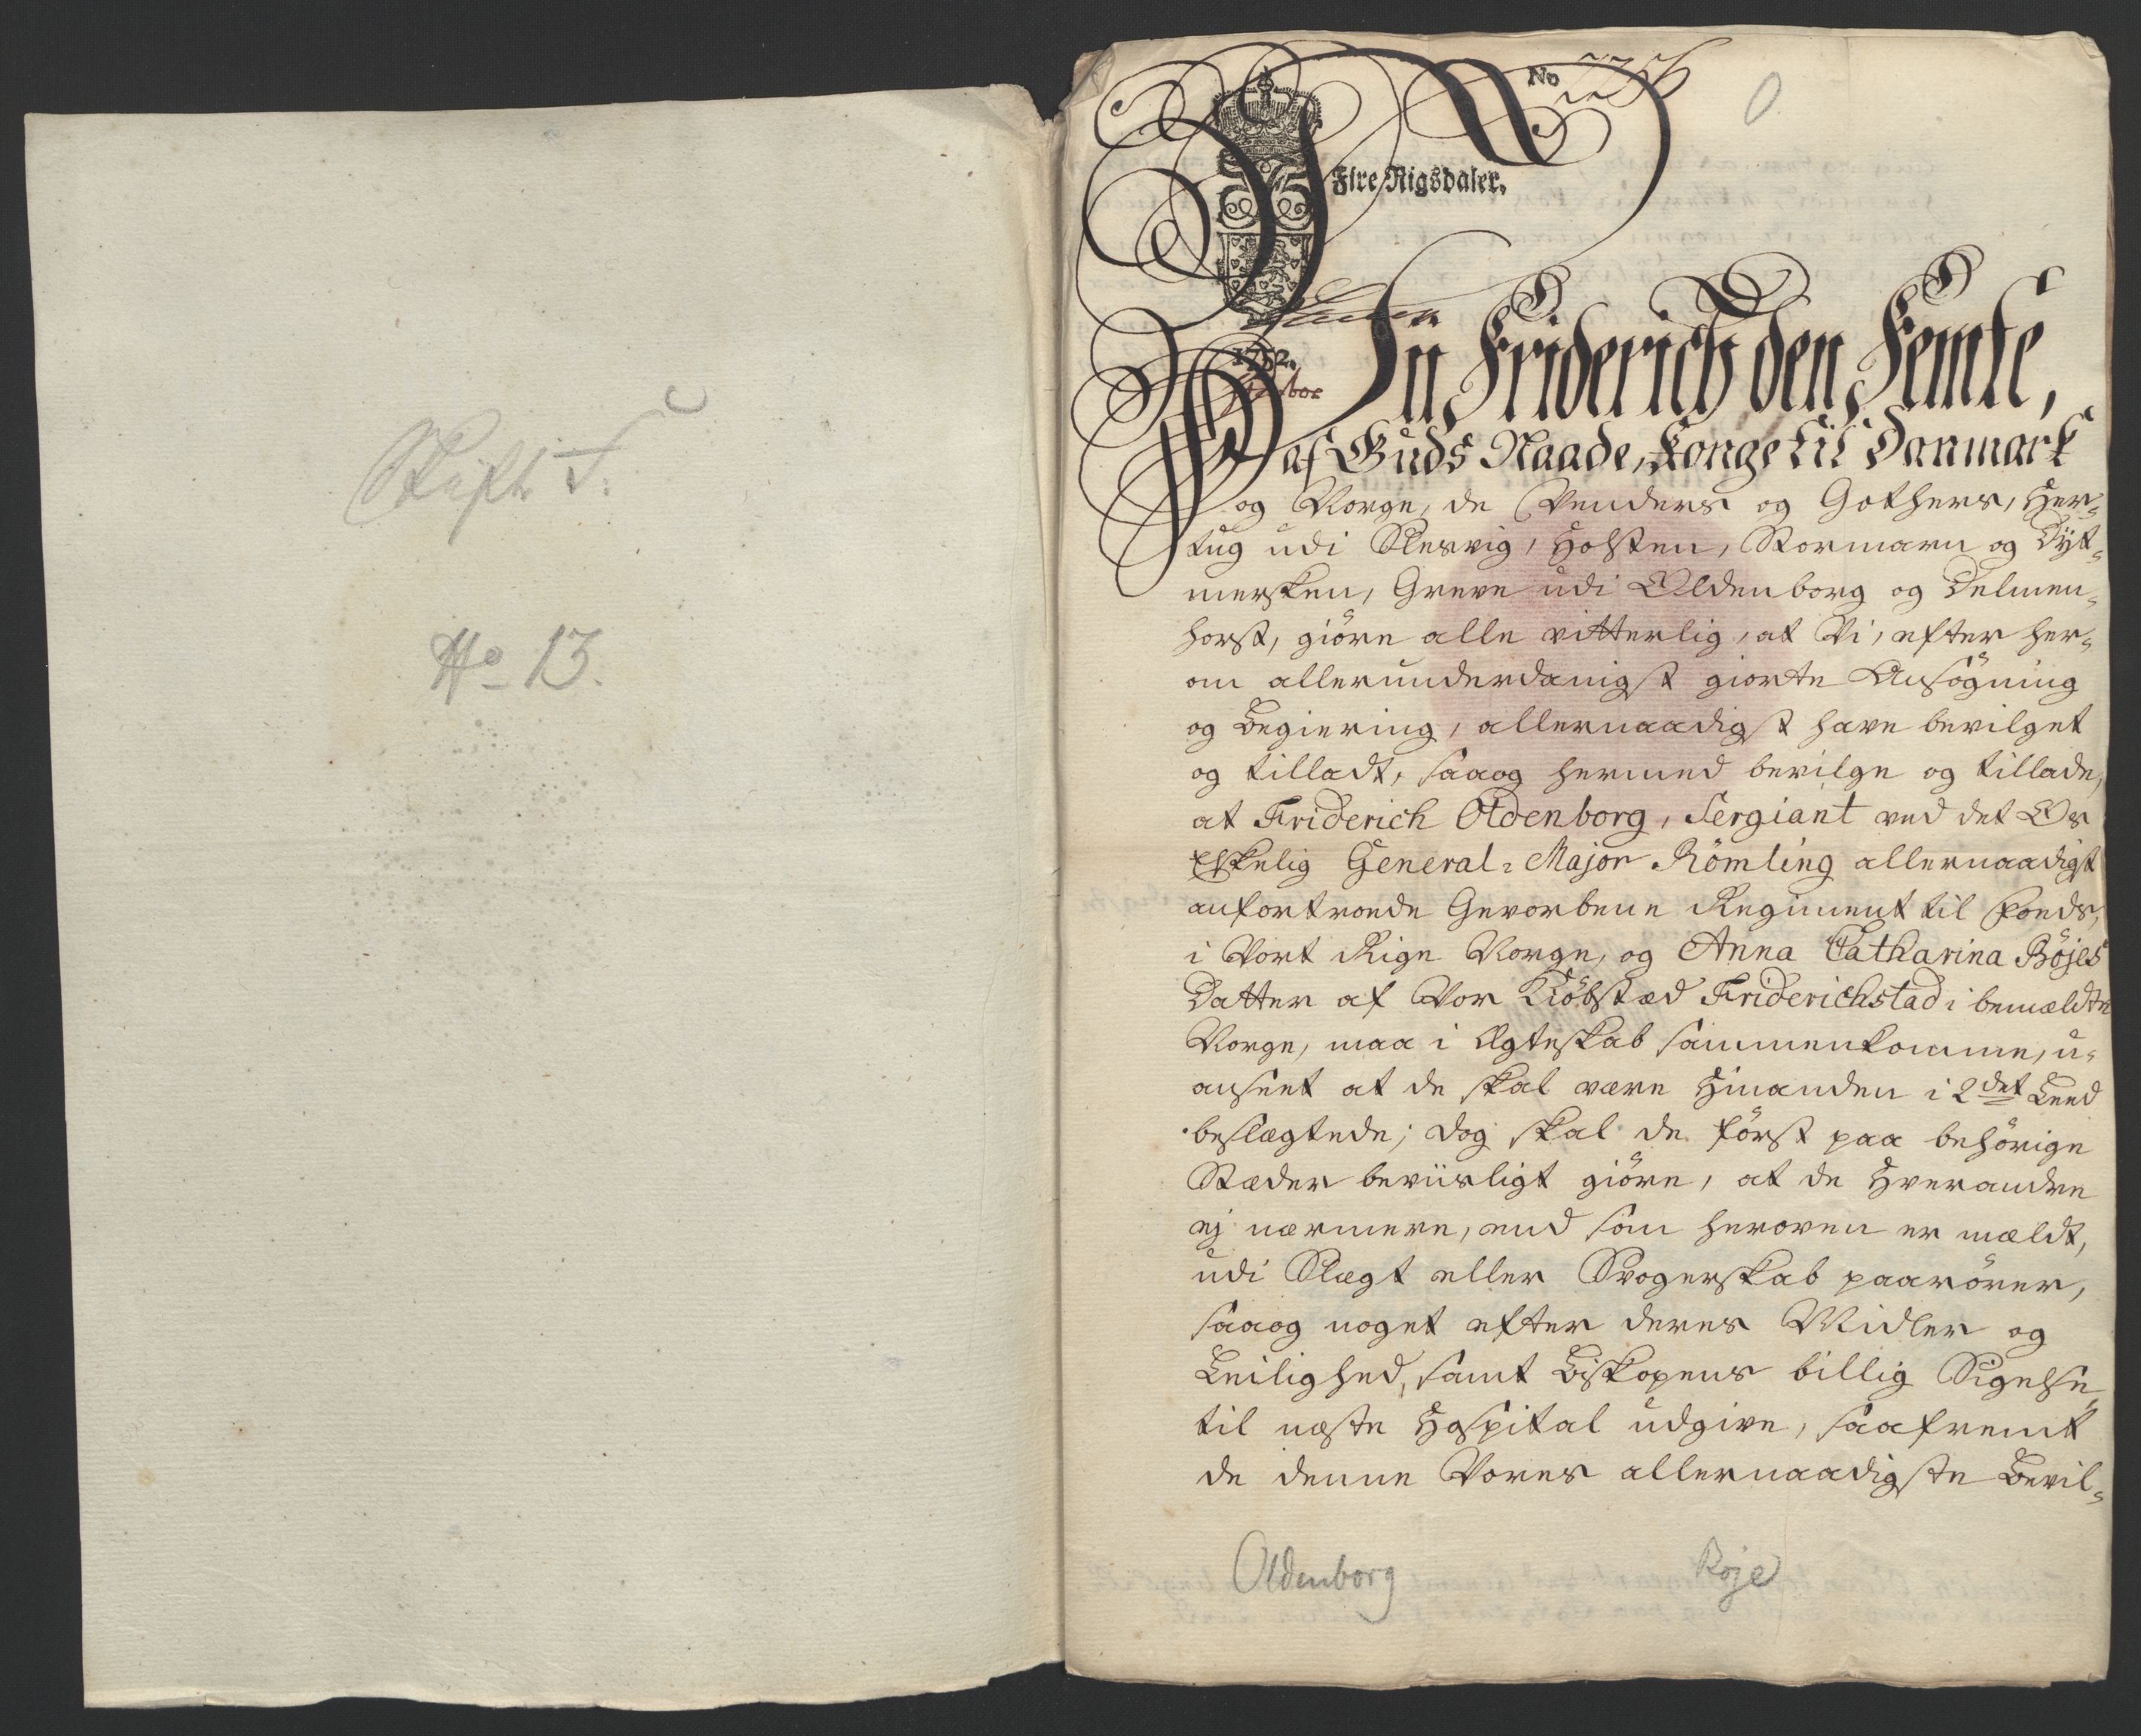 No 13.
No
Fire Rigsdaler.
1752.
Wii Friderich den Femte,
af Guds Naade, Konge til Danmark
og Norge, de Venders og Gothers, Her-
tug udi Slesvig, Holsten, Stormarn og Dyt-
mersken, Greve udi Oldenborg og Delmen-
horst, giöre alle vitterlig, at Vi, efter her-
om allerunderdanigst giorte Ansögning
og Begiering, allernaadigst have bevilget
og tilladt, saaog hermed bevilge og tillade,
at Friderich Oldenborg, Sergiant ved det Os
Elskelig General-Major Römling allernaadigst
anfortroede Gevorbene Regiment til Foeds,
i Vort Rige Norge, og Anna Catharina Böjes
Datter af Vor Kiöbstæd Friderichstad i bemældte
Norge, maa i Ægteskab sammenkomme, u-
anseet at de skal være Hinanden i 2det Leed
beslægtede; dog skal de först paa behörige
Stæder beviisligt giöre, at de Hverandre
ej nærmere, end som heroven er mældt,
udi Slægt eller Svogerskab paarörer,
saaog noget efter deres Midler og
Leilighed, samt Biskopens billig Sigelse,
til næste Hospital udgive, saafremt
de denne Vores allernaadigste Bevil-
Oldenborg
Böje